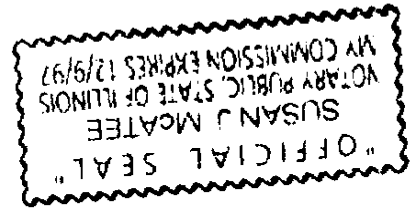 "OFFICIAL SEAL"
SUSAN J McATEE
NOTARY PUBLIC, STATE OF ILLINOIS
MY COMMISSION EXPIRES 12/9/97